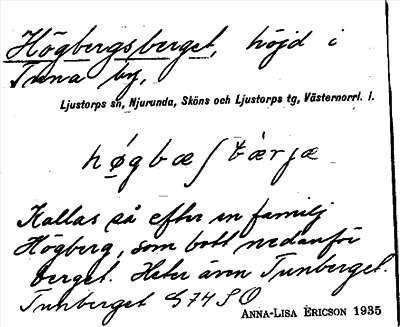 Högbergsberget, höjd i
Tuna by,
Ljustorps sn, Njurunda, Sköns och Ljustorps tg, Västernorrl. l.
Kallas så efter en familj
Högberg, som bott nedanför
berget. Heter även Tunberget.
Tunberget G74SO
ANNA-LISA ERICSON 1935